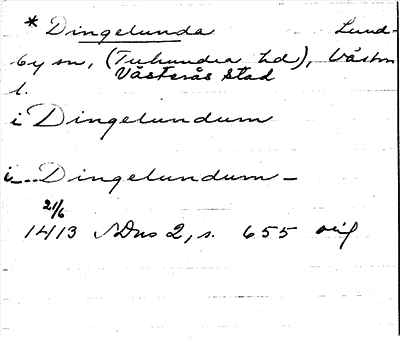 * Dingelunda Lund-
by sn, (Tuhundra hd), Västm
Västerås stad
l.
i Dingelundum
i... Dingelundum -
21/6
1413 SDns 2, s. 655 orig